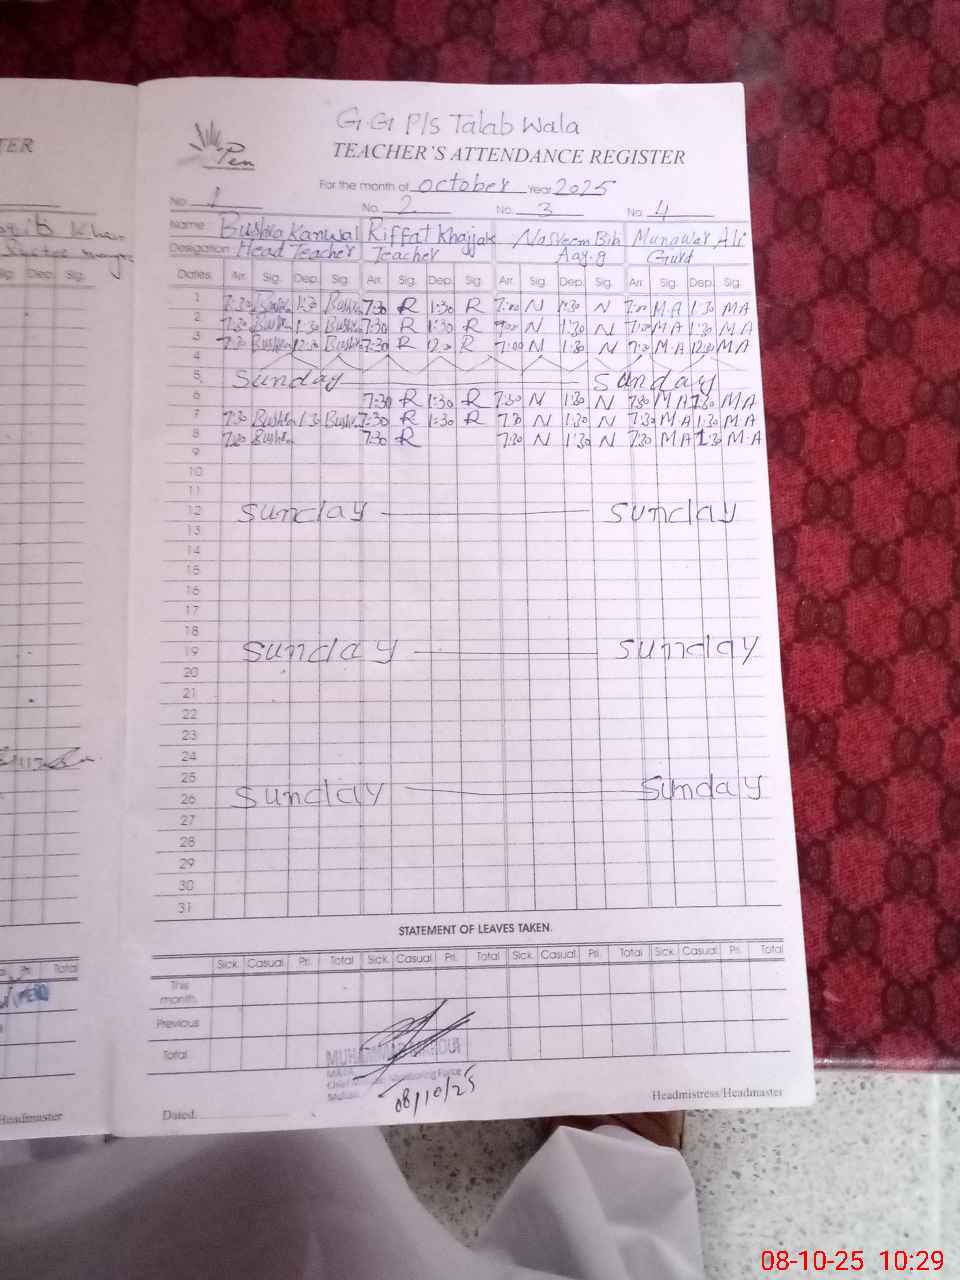 TER
G.G P/s Talab Wala
Pen
TEACHER'S ATTENDANCE REGISTER
For the month of october Year 2025
No. 1 No. 2 No. 3 No. 4
Name Bushra Kanwal Riffat Khajjak Nasreem Bibi Munawar Ali
Designation Head Teacher Teacher Aay.g Gurd
Dep. Sig.
Dates Arr. Sig. Dep. Sig. Arr. Sig. Dep. Sig. Arr. Sig. Dep. Sig. Arr. Sig. Dep. Sig.
1 7:30 Bushra 1:30 Bushra 7:30 R 1:30 R 7:00 N 1:30 N 7:00 M.A 1:30 MA
2 7:30 Bushra 1:30 Bushra 7:30 R 1:30 R 7:00 N 1:30 N 7:00 MA 1:30 MA
3 7:30 Bushra 12:30 Bushra 7:30 R 12:30 R 7:00 N 1:30 N 7:30 M.A 12:30 MA
4
5 Sunday Sunday
6 7:30 R 1:30 R 7:30 N 1:30 N 7:30 MA 1:30 MA
7 7:30 Bushra 1:30 Bushra 7:30 R 1:30 R 7:30 N 1:30 N 7:30 MA 1:30 MA
8 7:30 Bushra 7:30 R 7:30 N 1:30 N 7:30 MA 1:30 M.A
9
10
11
12 Sunday Sunday
13
14
15
16
17
18
19 Sunday Sunday
20
21
22
23
24
25
26 Sunday Sunday
27
28
29
30
31
STATEMENT OF LEAVES TAKEN.
Pri. Total
Sick. Casual Pri. Total Sick. Casual Pri. Total Sick. Casual Pri. Total Sick. Casual Pri. Total
This month.
Previous
Total
Monitoring Force
08/10/25
Headmaster
Dated.
Headmistress/Headmaster
08-10-25 10:29